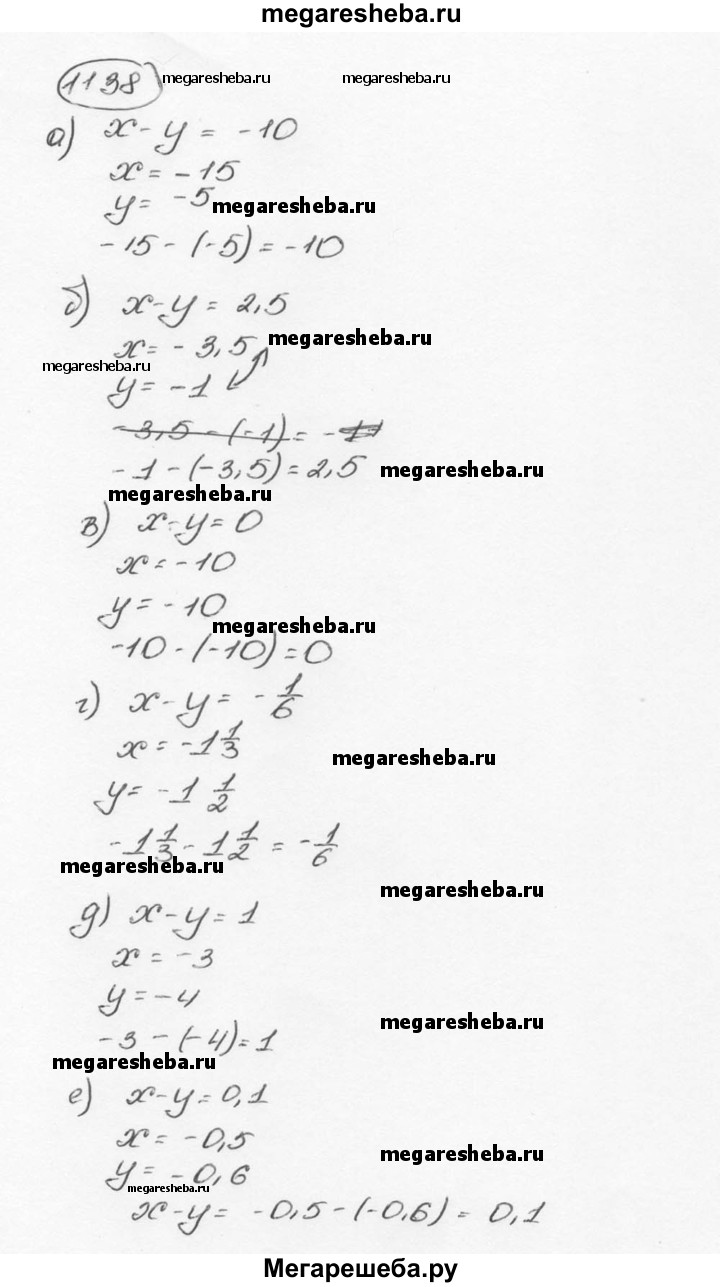 megaresheba.ru
1138 megaresheba.ru megaresheba.ru
а) x - y = -10
x = -15
y = -5 megaresheba.ru
-15 - (-5) = -10
б) x - y = 2,5
x = -3,5 megaresheba.ru
megaresheba.ru
y = -1
-3,5 - (-1) = -
-1 - (-3,5) = 2,5 megaresheba.ru
megaresheba.ru
в) x - y = 0
x = -10
y = -10
megaresheba.ru
-10 - (-10) = 0
г) x - y = - 1/6
x = -1 1/3 megaresheba.ru
y = -1 1/2
-1 1/3 - 1 1/2 = - 1/6
megaresheba.ru
megaresheba.ru
д) x - y = 1
x = -3
y = -4
megaresheba.ru
-3 - (-4) = 1
megaresheba.ru
е) x - y = 0,1
x = -0,5
megaresheba.ru
y = -0,6
megaresheba.ru
x - y = -0,5 - (-0,6) = 0,1
Мегарешеба.ру